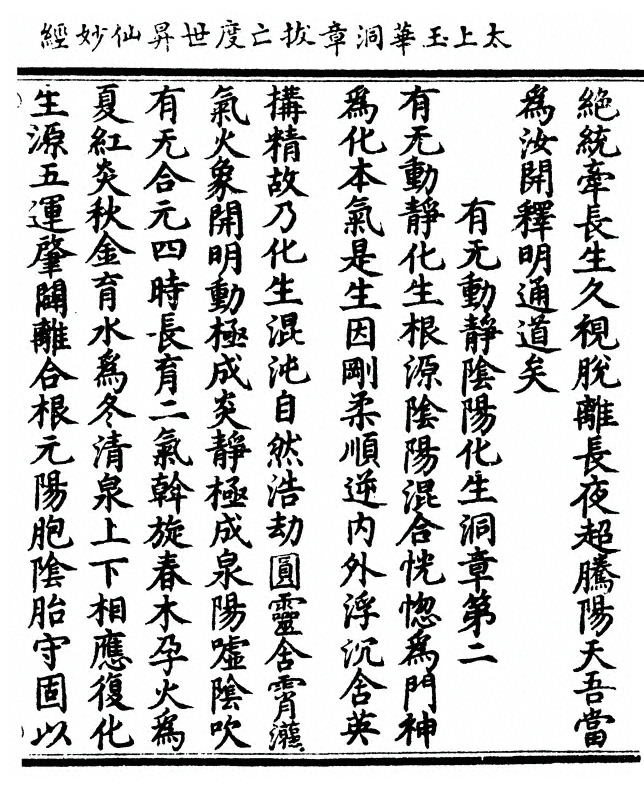 太上玉華洞章拔亡度世昇仙妙經
絕統牽長生久視脫離長夜超騰陽天吾當
為汝開釋明通道矣
有无動靜陰陽化生洞章第二
有无動靜化生根源陰陽混合恍惚為門神
為化本氣是生因剛柔順逆內外浮沉舍英
搆精故乃化生混沌自然浩劫圓靈舍霄
氣火象開明動極成炎靜極成泉陽噓陰吹
有无合元四時長育二氣斡旋春木孕火為
夏紅炎秋金育水為冬清泉上下相應復化
生源五運肇闢離合根元陽胞陰胎守固以